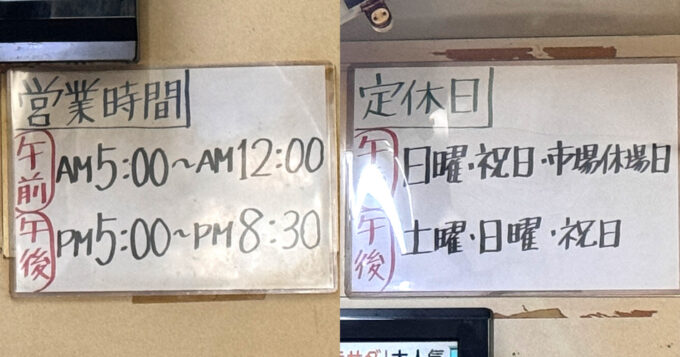 営業時間
午前 AM5:00～AM12:00
午後 PM5:00～PM8:30
定休日
午前 日曜・祝日・市場休場日
午後 土曜・日曜・祝日